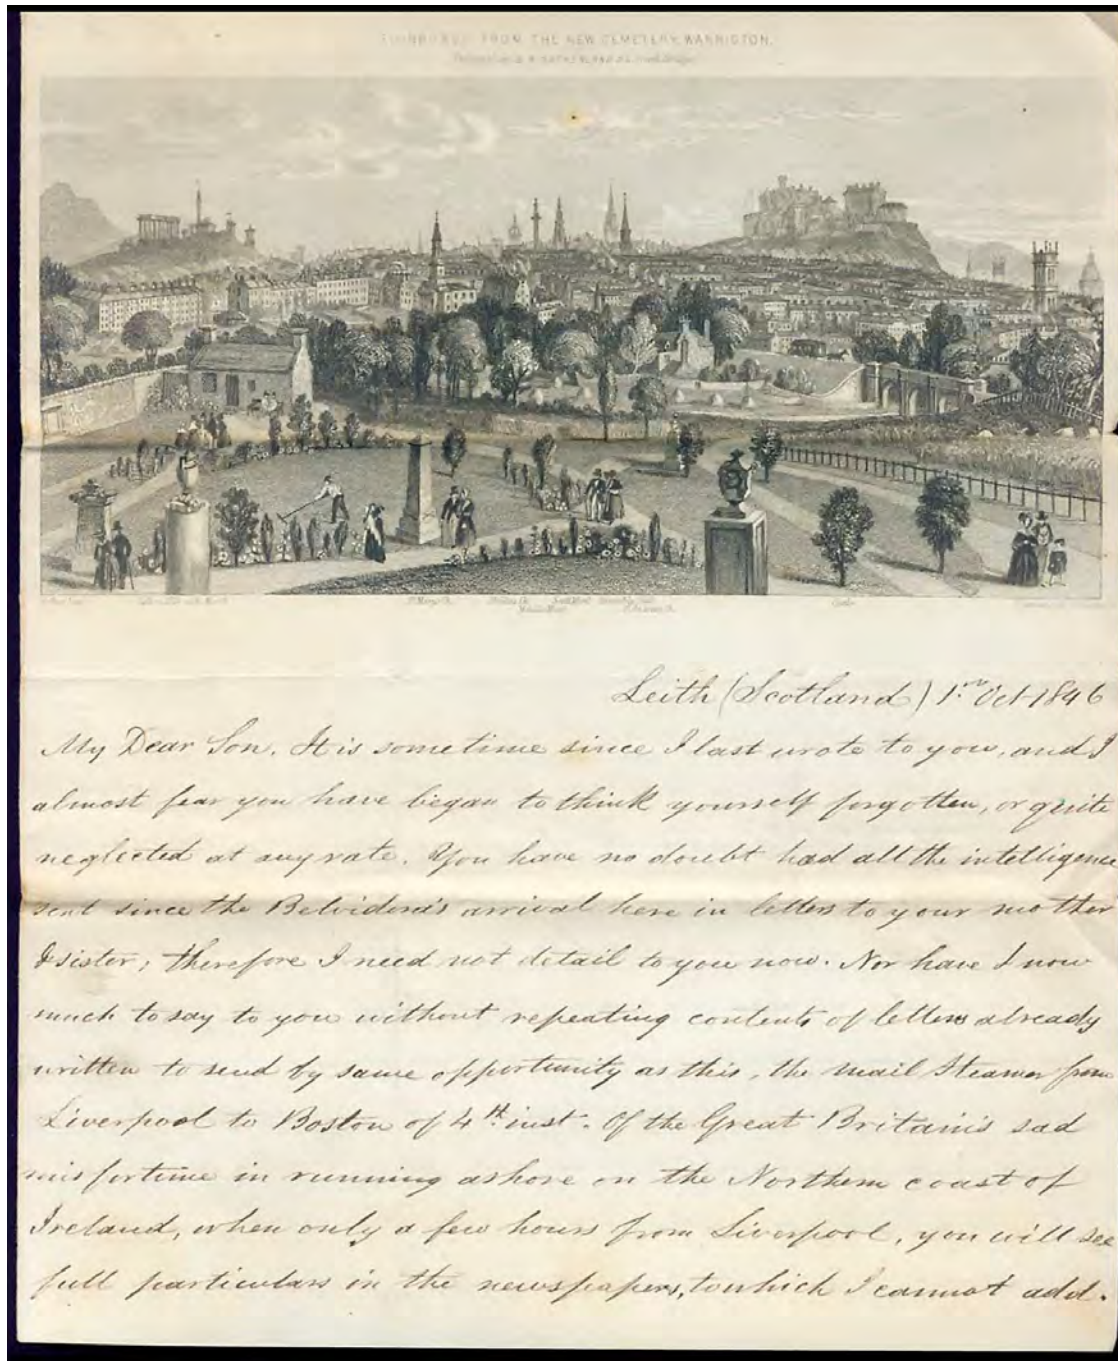 EDINBURGH FROM THE NEW CEMETERY, WARRISTON.
Leith (Scotland) 1st Oct 1846
My Dear Son. It is sometime since I last wrote to you, and I
almost fear you have began to think yourself forgotten, or quite
neglected at any rate. You have no doubt had all the intelligence
sent since the Belvidera's arrival here in letters to your mother
& sister; therefore I need not detail to you now. Nor have I now
much to say to you without repeating contents of letters already
written to send by same opportunity as this, the mail Steamer from
Liverpool to Boston of 4th inst. Of the Great Britain's sad
misfortune in running ashore on the Northern coast of
Ireland, when only a few hours from Liverpool, you will see
full particulars in the newspapers, to which I cannot add.